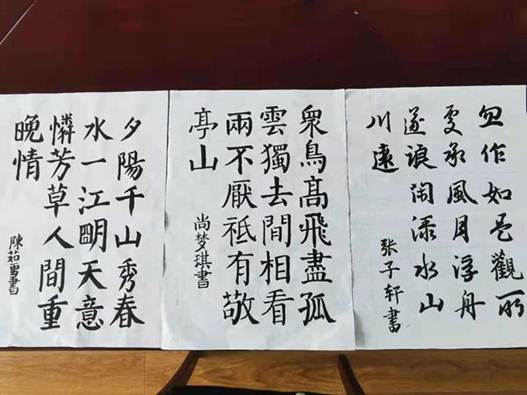 作如是觀所
承風月浮舟
浪闲添水山
川遠
张子轩書
衆鳥髙飛盡孤
雲獨去間相看
兩不厭祗有敬
亭山
尚梦琪書
夕陽千山秀春
水一江眀天意
憐芳草人間重
晚情
陳茹雪書